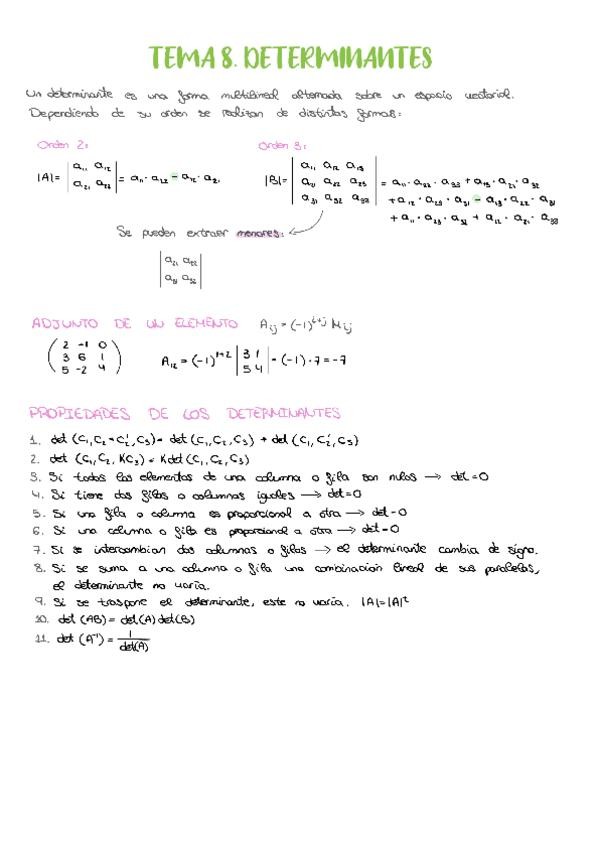 TEMA 8. DETERMINANTES
Un determinante es una forma multilineal alternada sobre un espacio vectorial.
Dependiendo de su orden se realizan de distintas formas:
Orden 2: Orden 3:
|A| = | a₁₁ a₁₂ | = a₁₁ · a₂₂ − a₁₂ · a₂₁
| a₂₁ a₂₂ |
| a₁₁ a₁₂ a₁₃ |
|B| = | a₂₁ a₂₂ a₂₃ | = a₁₁ · a₂₂ · a₃₃ + a₁₃ · a₂₁ · a₃₂
| a₃₁ a₃₂ a₃₃ | + a₁₂ · a₂₃ · a₃₁ − a₁₃ · a₂₂ · a₃₁
+ a₁₁ · a₂₃ · a₃₂ + a₁₂ · a₂₁ · a₃₃
Se pueden extraer menores:
| a₂₁ a₂₂ |
| a₃₁ a₃₂ |
ADJUNTO DE UN ELEMENTO Aᵢⱼ = (-1)ⁱ⁺ʲ Mᵢⱼ
2 -1 0
3 6 1
5 -2 4
A₁₂ = (-1)¹⁺² | 3 1 | = (-1) · 7 = -7
| 5 4 |
PROPIEDADES DE LOS DETERMINANTES
1. det (C₁, C₂ + C₂', C₃) = det (C₁, C₂, C₃) + det (C₁, C₂', C₃)
2. det (C₁, C₂, KC₃) = K det (C₁, C₂, C₃)
3. Si todos los elementos de una columna o fila son nulos → det = 0
4. Si tiene dos filas o columnas iguales → det = 0
5. Si una fila o columna es proporcional a otra → det = 0
6. Si una columna o fila es proporcional a otra → det = 0
7. Si se intercambian dos columnas o filas → el determinante cambia de signo.
8. Si se suma a una columna o fila una combinación lineal de sus paralelas,
el determinante no varía.
9. Si se traspone el determinante, este no varía. |A| = |A|ᵗ
10. det (AB) = det(A) det(B)
11. det (A⁻¹) = 1 / det(A)